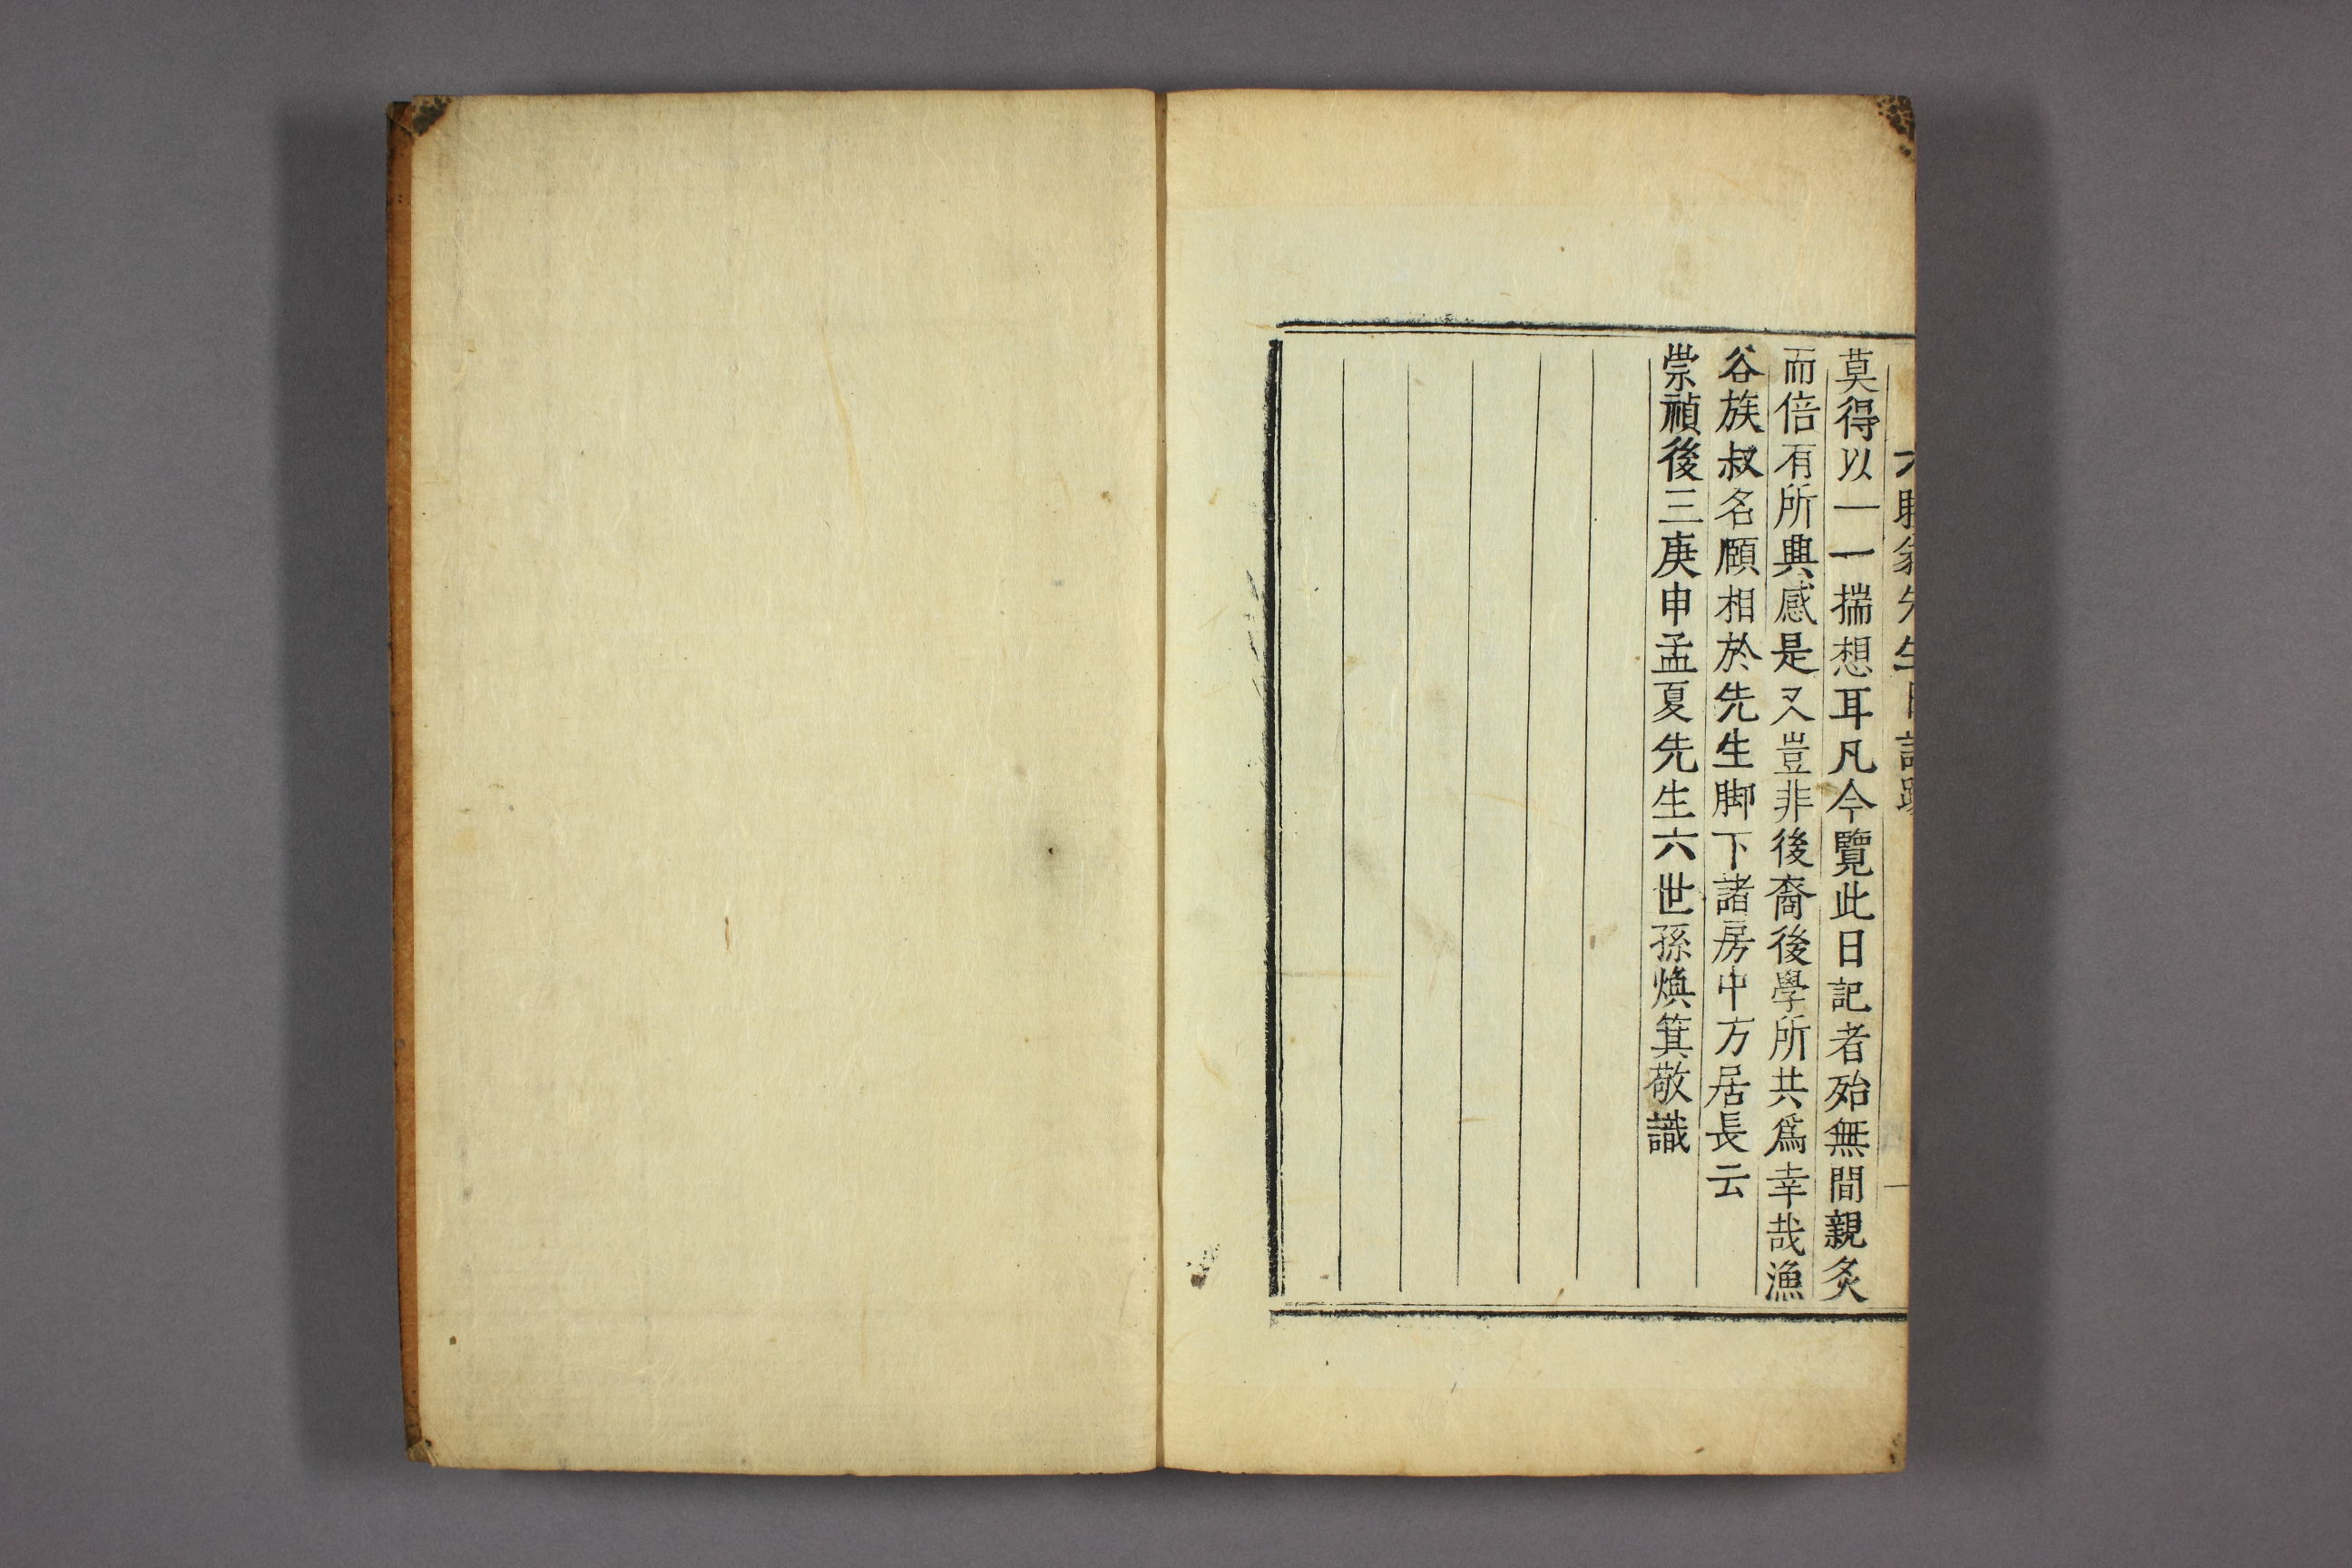 先生日記跋
莫得以一一揣想耳凡今覽此日記者殆無間親炙
而倍有所興感是又豈非後裔後學所共爲幸哉漁
谷族叔名願相於先生脚下諸房中方居長云
崇禎後三庚申孟夏先生六世孫煥箕敬識